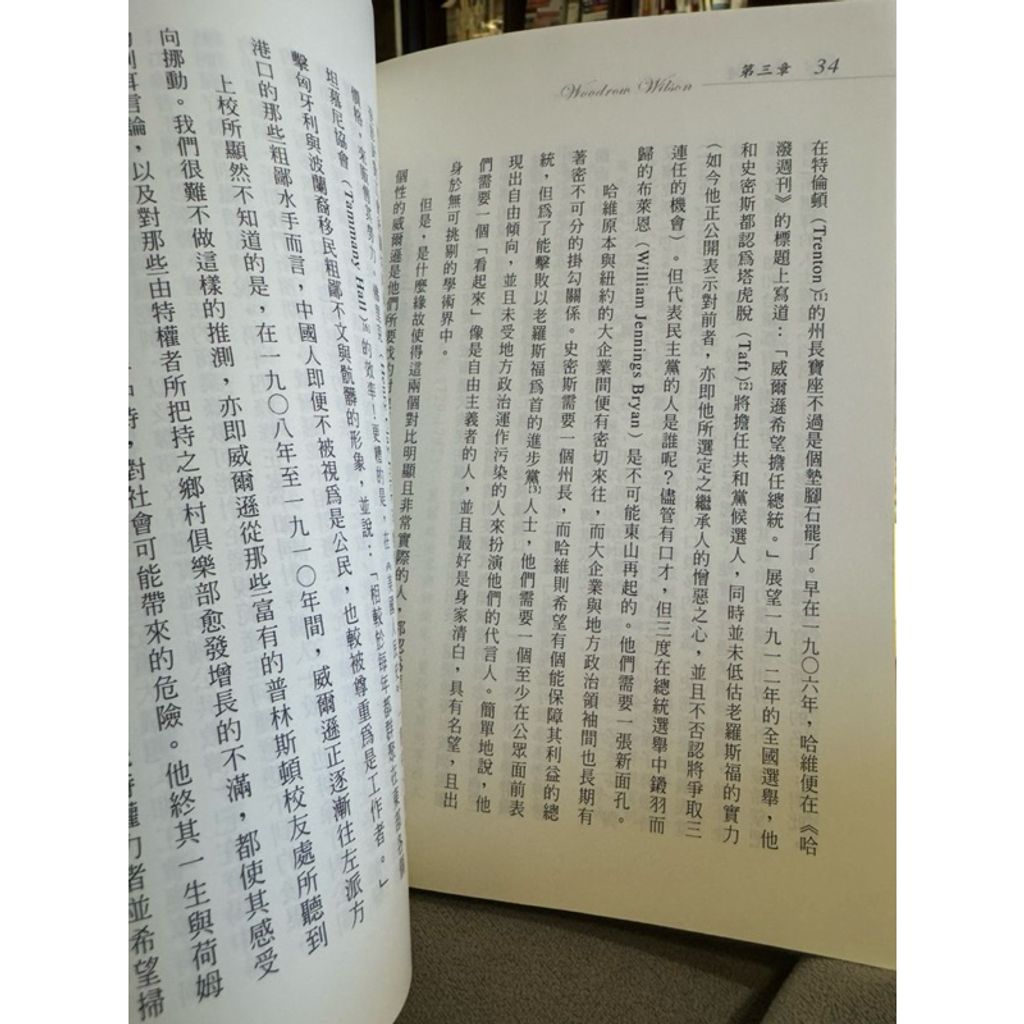 第三章 34
Woodrow Wilson
在特倫頓（Trenton）[1]的州長寶座不過是個墊腳石罷了。早在一九〇六年，哈維便在《哈
潑週刊》的標題上寫道：「威爾遜希望擔任總統。」展望一九一二年的全國選舉，他
和史密斯都認爲塔虎脫（Taft）[2]將擔任共和黨候選人，同時並未低估老羅斯福的實力
（如今他正公開表示對前者，亦即他所選定之繼承人的憎惡之心，並且不否認將爭取三
連任的機會）。但代表民主黨的人是誰呢？儘管有口才，但三度在總統選舉中鍛羽而
歸的布萊恩（William Jennings Bryan）是不可能東山再起的。他們需要一張新面孔。
哈維原本與紐約的大企業間便有密切來往，而大企業與地方政治領袖間也長期有
著密不可分的掛勾關係。史密斯需要一個州長，而哈維則希望有個能保障其利益的總
統，但爲了能擊敗以老羅斯福爲首的進步黨[3]人士，他們需要一個至少在公眾面前表
現出自由傾向，並且未受地方政治運作污染的人來扮演他們的代言人。簡單地說，他
們需要一個「看起來」像是自由主義者的人，並且最好是身家清白，具有名望，且出
身於無可挑剔的學術界中。
但是，是什麼緣故使得這兩個對比明顯且非常實際的人，
個性的威爾遜是他們所要找的
坦慕尼協會（Tammany Hall）[6]的效率！更糟的是，在
擊匈牙利與波蘭裔移民粗鄙不文與骯髒的形象，並說：「相較於每年都群聚在東部各個
港口的那些粗鄙水手而言，中國人即便不被視爲是公民，也較被尊重爲是工作者。」
上校所顯然不知道的是，在一九〇八年至一九一〇年間，威爾遜正逐漸往左派方
向挪動。我們很難不做這樣的推測，亦即威爾遜從那些富有的普林斯頓校友處所聽到
言論，以及對那些由特權者所把持之鄉村俱樂部愈發增長的不滿，都使其感受
對社會可能帶來的危險。他終其一生與荷姆
權力者並希望掃